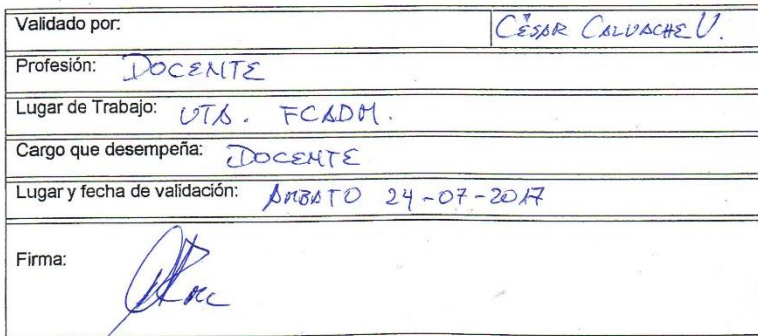 Validado por: CÉSAR CALVACHE V.
Profesión: DOCENTE
Lugar de Trabajo: UTA. FCADM.
Cargo que desempeña: DOCENTE
Lugar y fecha de validación: AMBATO 24-07-2017
Firma: